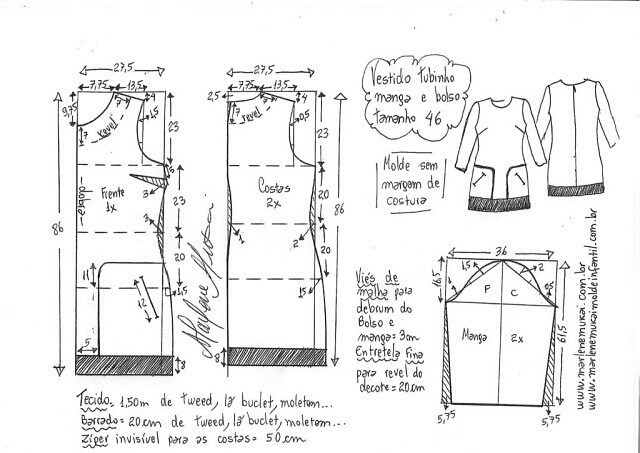 27,5
7,75
13,5
4
9,75
7
7
revel
1,5
23
15
3
dobra
Frente
1x
23
3
86
20
11
12
1,5
5
8
Marlene Mukai
27,5
2,5
7,75
13,5
4
7
7
revel
0,5
23
Costas
2x
20
86
1
2
20
15
8
Vestido tubinho
manga e bolso
tamanho 46
Molde sem
margem de
costura
Viés de
malha para
debrum do
Bolso e
manga = 3m
Entretela Fina
para revel do
decote = 20cm
36
16,5
1,5
2
1
0,5
F
C
Manga
2x
61,5
5,75
5,75
www.marlenemukai.com.br
www.marlenemukaimoldeinfantil.com.br
Tecido = 1,50m de tweed, lã buclet, moletom...
Barrado = 20cm de tweed, lã buclet, moletom...
Zíper invisível para as costas = 50cm